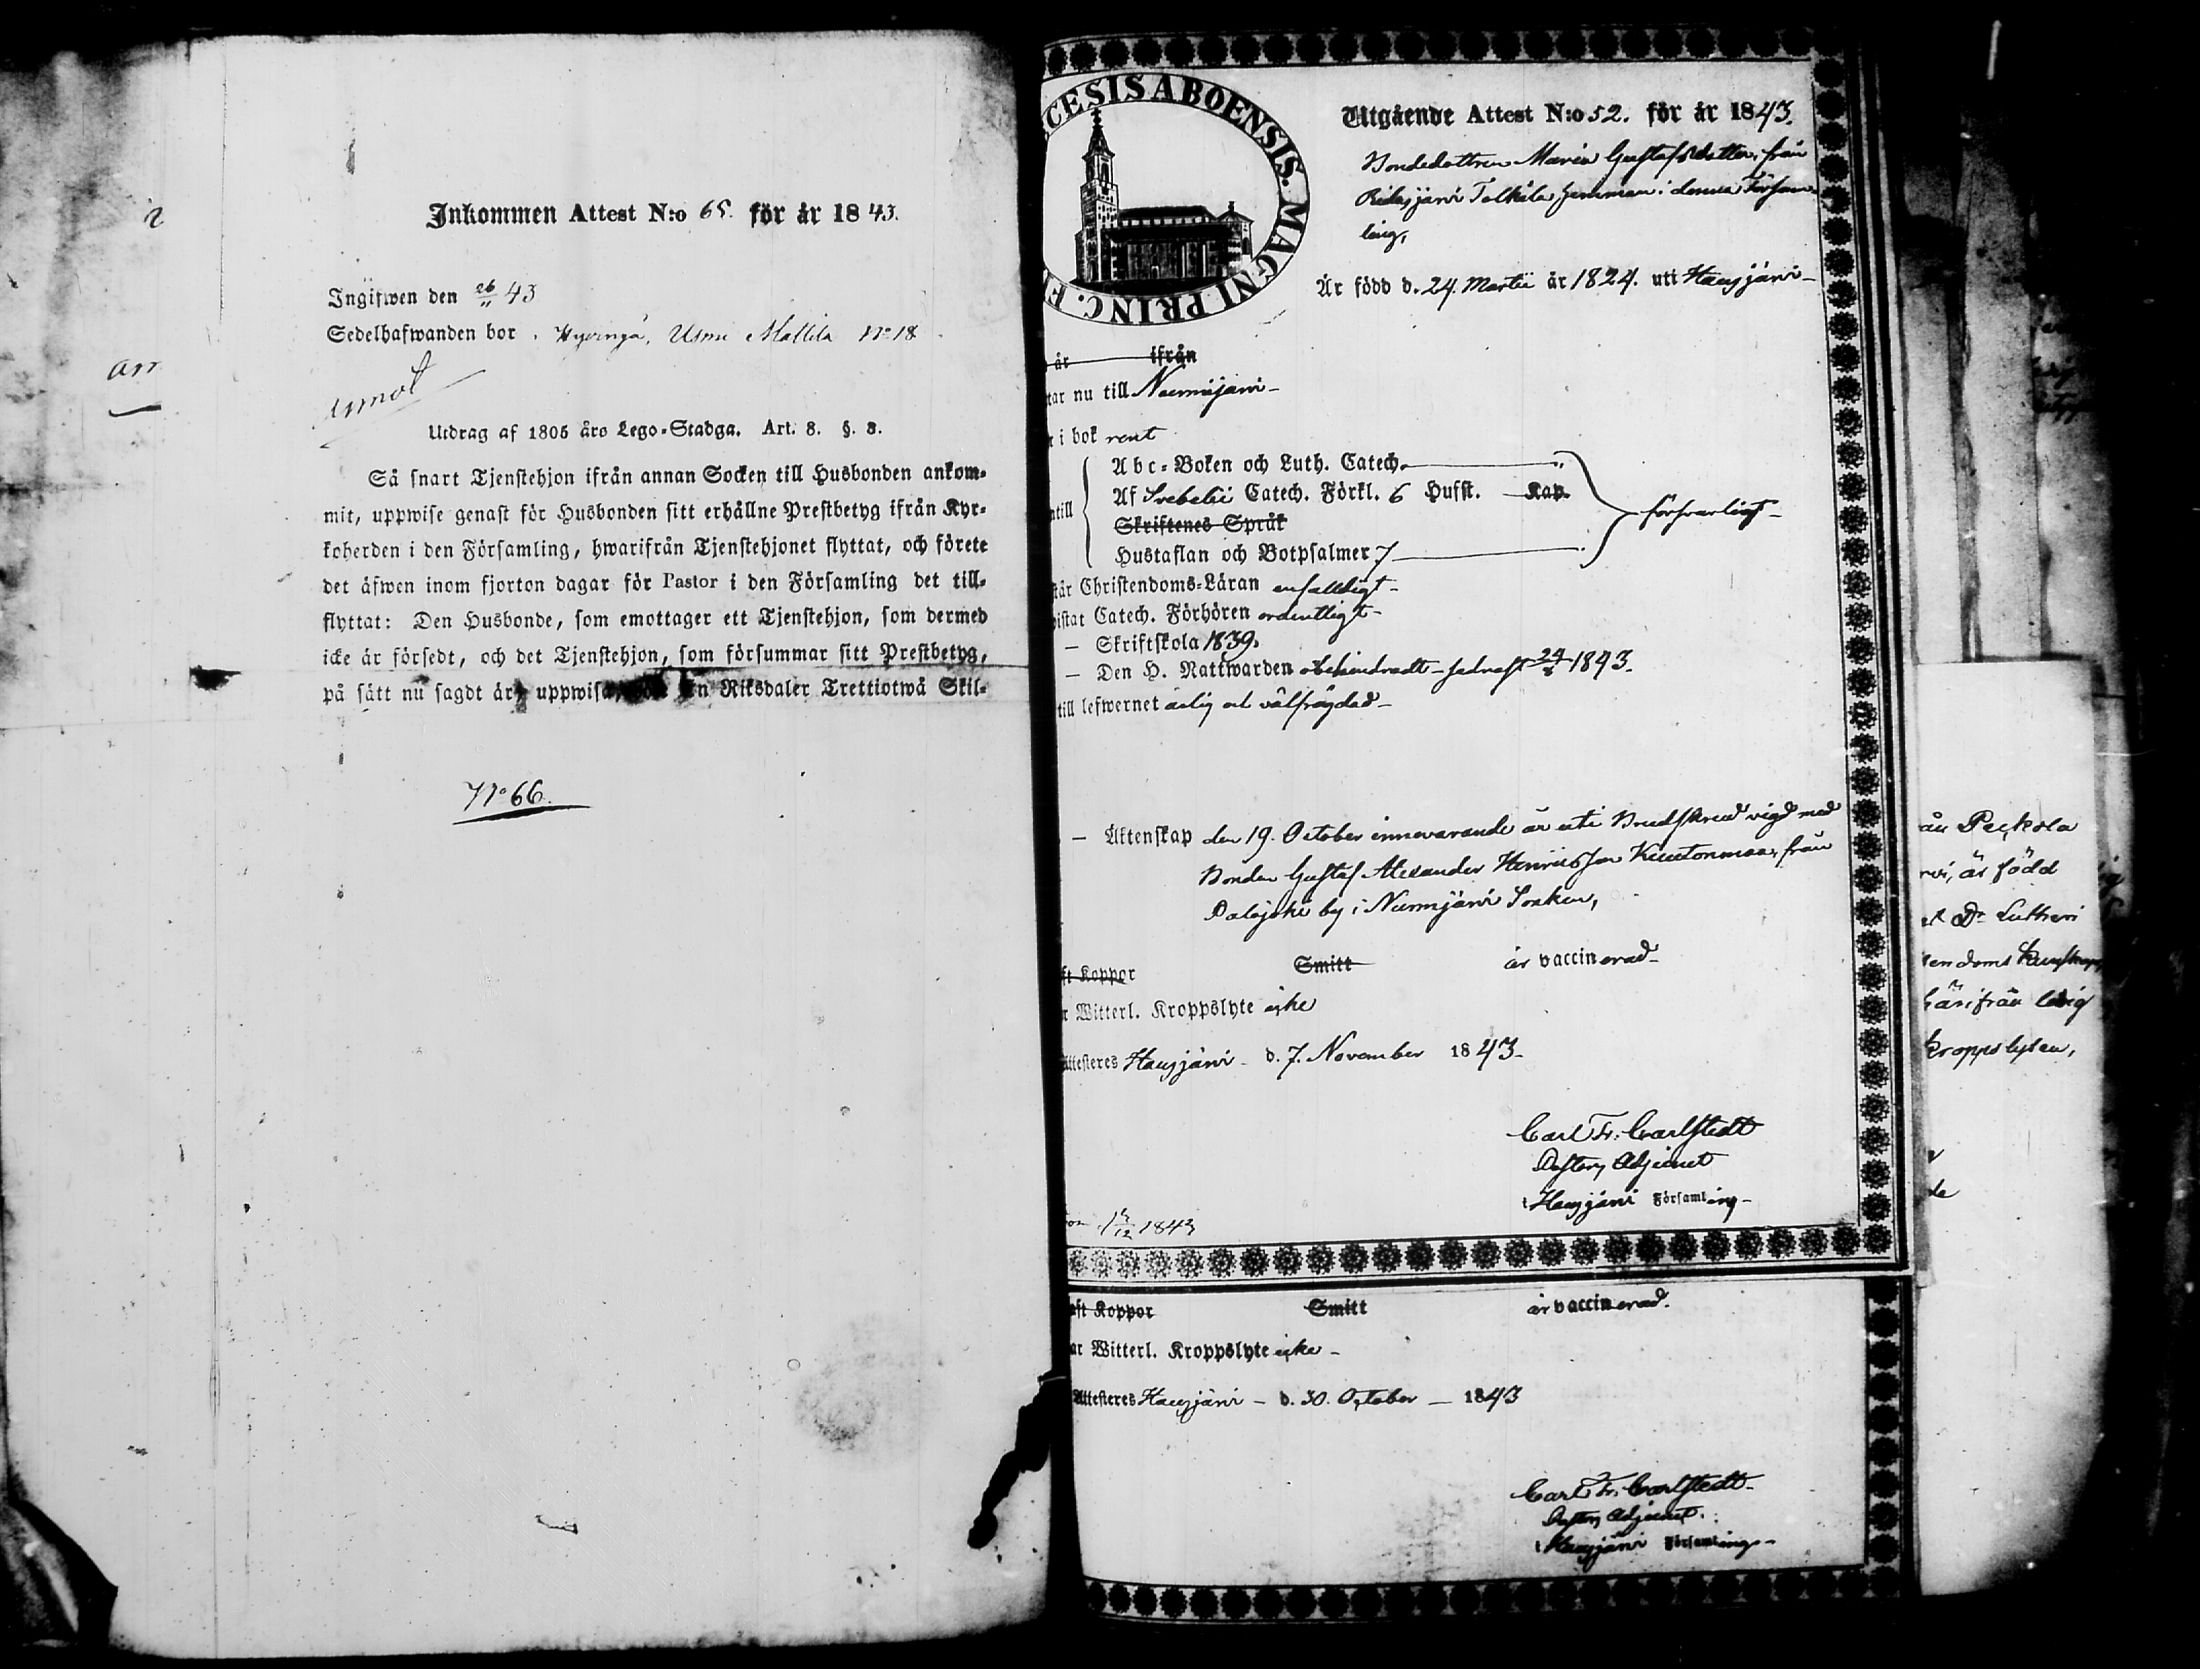 Inkommen Attest N:o 65. för år 1843.
Ingifwen den 26/11 43
Sedelhafwanden bor . Hyvingä, Usmi Mattila No 18
Utdrag af 1805 års Lego-Stadga. Art. 8. §. 8.
Så snart Tjenstehjon ifrån annan Socken till Husbonden ankom-
mit, uppwise genast för Husbonden sitt erhållne Prestbetyg ifrån Kyr-
koherden i den Församling, hwarifrån Tjenstehjonet flyttat, och förete
det äfwen inom fjorton dagar för Pastor i den Församling det till-
flyttat: Den Husbonde, som emottager ett Tjenstehjon, som dermed
icke är försedt, och det Tjenstehjon, som försummar sitt Prestbetyg,
på sätt nu sagdt är, uppwisa, en Riksdaler Trettiotwå Skil-
No 66.
CESIS ABOENSIS. MAGNI PRINC. F
Utgående Attest N:o 52. för år 1843.
Bondedottren Maria Gustafsdotter, från
Ridasjärvi Tolkila hemman i denna Försam-
ling,
Är född d. 24. Martii år 1824. uti Hausjärvi-
år ifrån
tar nu till Nurmijärvi-
i bok rent
Abc-Boken och Luth. Catech. "
ntill Af Svebelii Catech. Förkl. 6 Hufst. Kap. försvarligt-
Skriftenes Språk
Hustaflan och Botpsalmer 7
står Christendoms-Läran enfalldigt-
vistat Catech. Förhören ordentligt-
— Skriftskola 1839.
— Den H. Nattwarden obehindradt - sednast 24/ 1843.
till lefwernet ärlig och välfrägdad-
— Äktenskap den 19. October innevarande år uti Brudskrud vigd med
Bonden Gustaf Alexander Henricsson från
Palojoki by i Nurmijärvi Socken,
ft Koppor Smitt är vaccinerad-
r Witterl. Kroppslyte icke
Attesteres Hausjärvi - d. 7. November 1843-
Carl Fr. Carlstedt
Pastors Adjunct
i Hausjärvi Församling-
1843
aft Koppor Smitt är vaccinerad.
ar Witterl. Kroppslyte icke -
Attesteres Hausjärvi - d. 30. October — 1843
Carl Fr. Carlstedt-
Pastors Adjunct.
i Hausjärvi Församling-
rvi, är född
Dr Lutheri
härifrån ledig
kroppslyten,